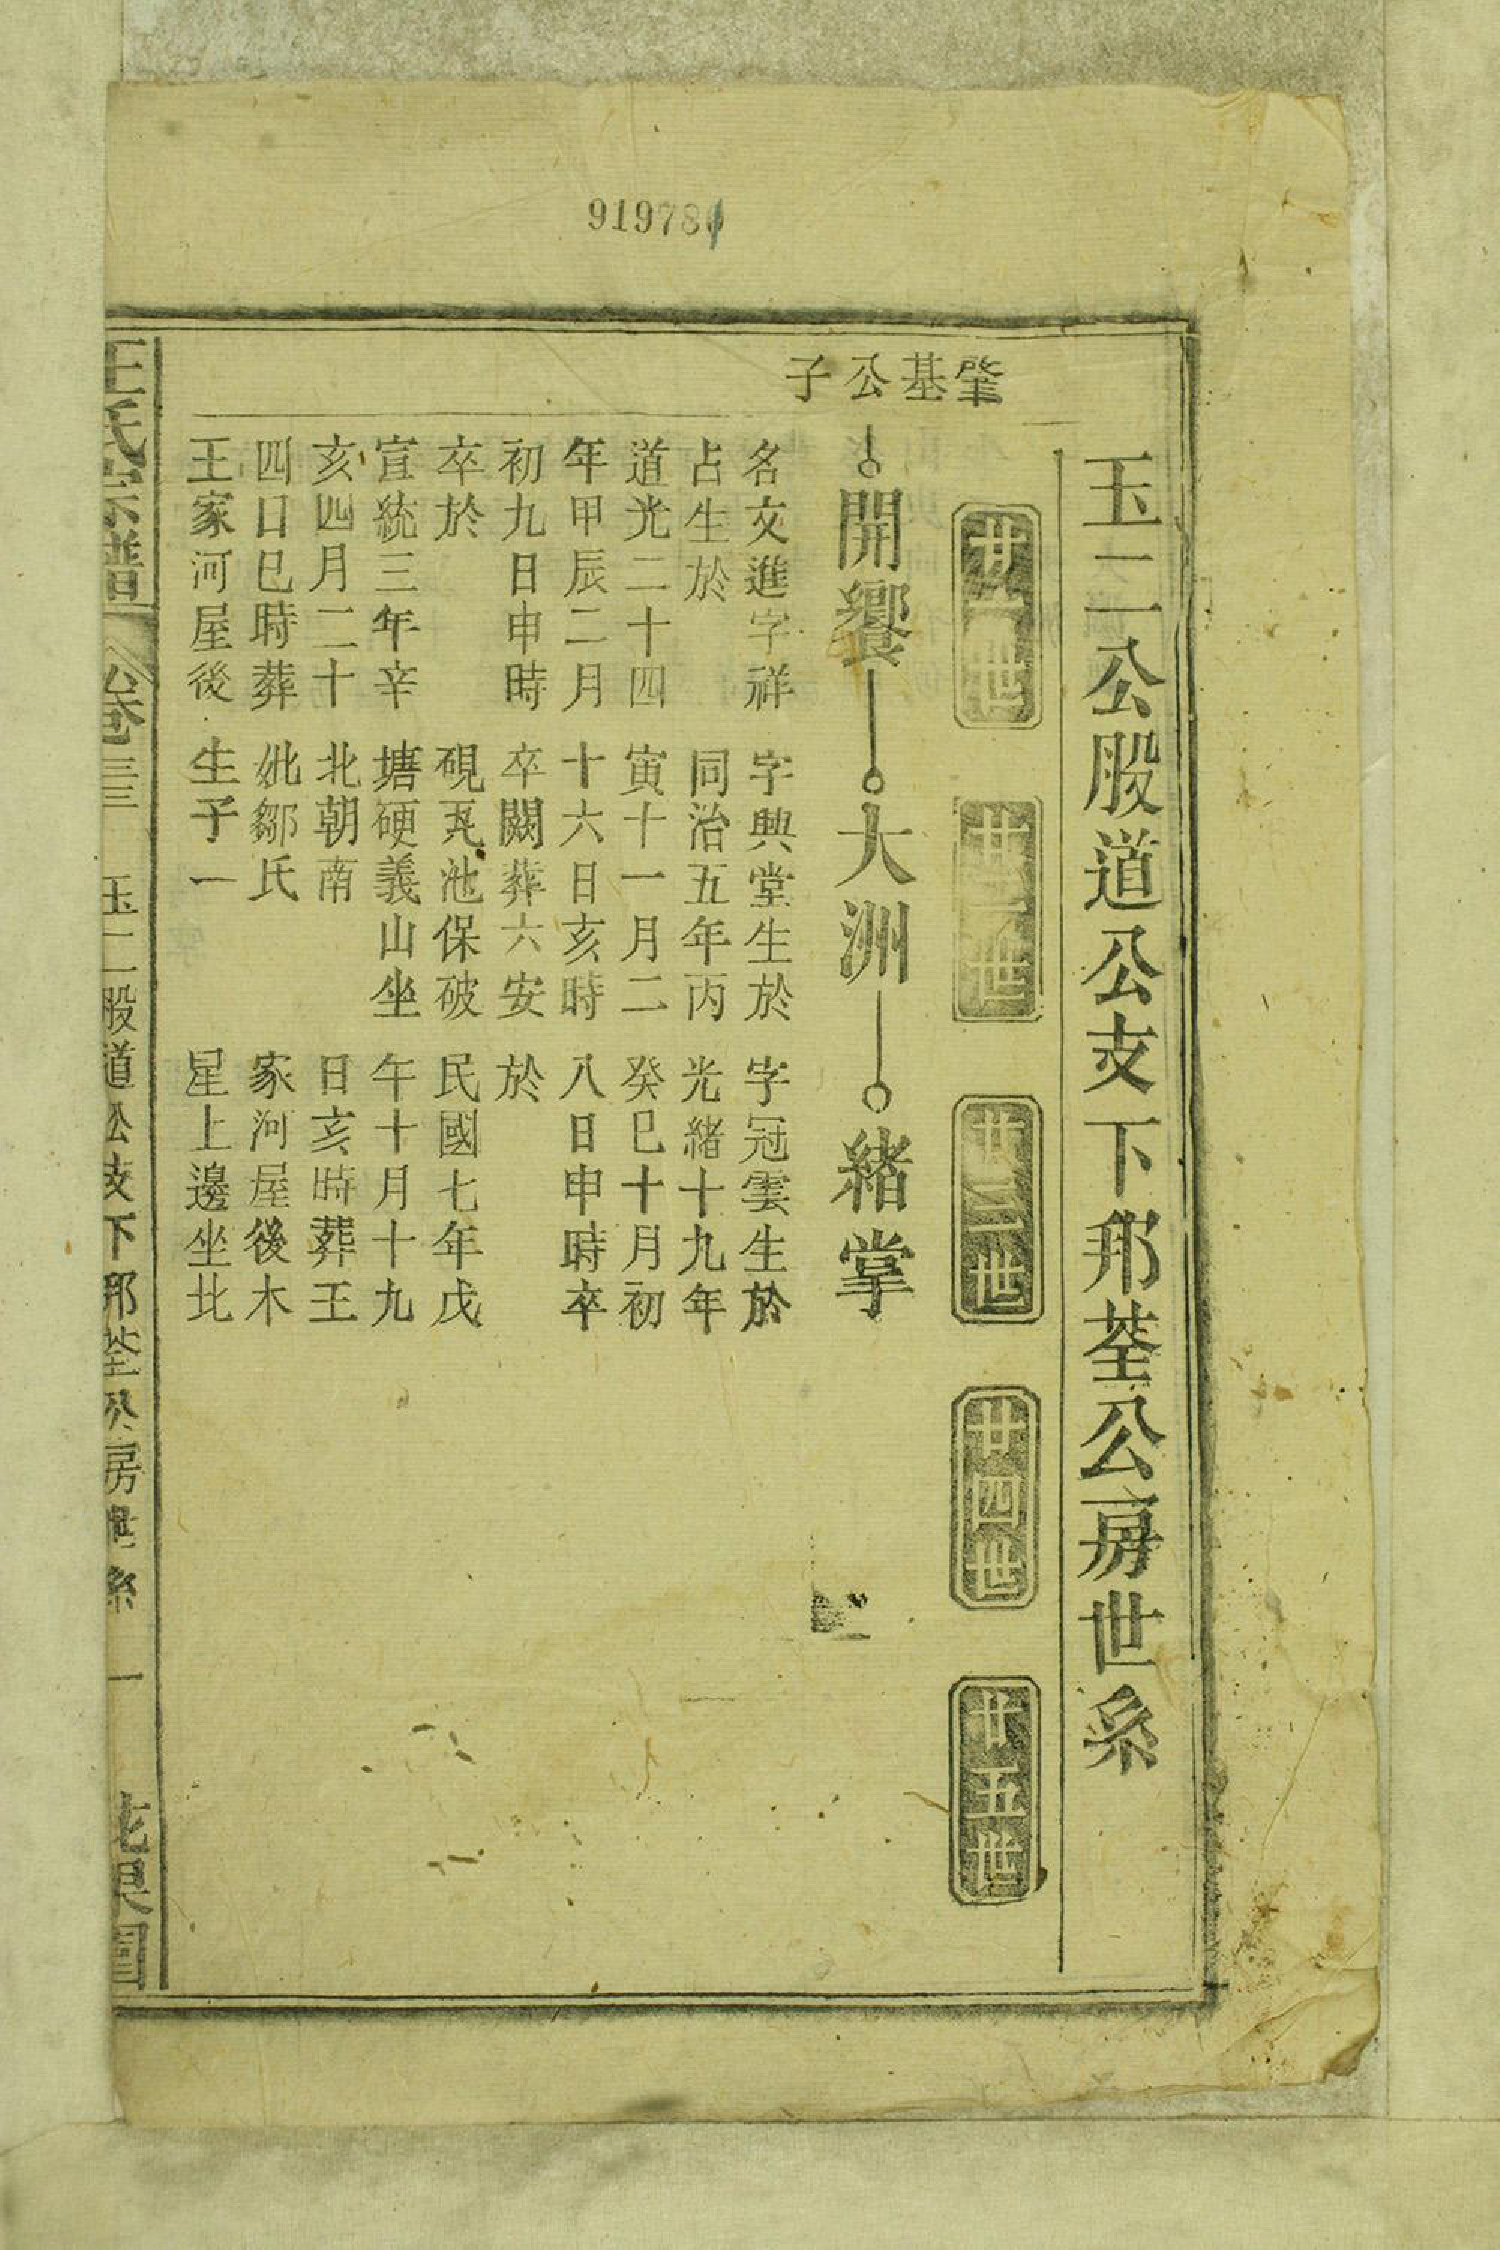 919781
玉二公股道公支下邦荃公房世系
廿一世
廿二世
廿三世
廿四世
廿五世
肇基公子
開饗
大洲
緒掌
名文進字祥
占生於
道光二十四
年甲辰二月
初九日申時
卒於
宣統三年辛
亥四月二十
四日巳時葬
王家河屋後
字興堂生於
同治五年丙
寅十一月二
十六日亥時
卒闕葬六安
硯瓦池保破
塘硬義山坐
北朝南
妣鄒氏
生子一
字冠雲生於
光緒十九年
癸巳十月初
八日申時卒
於
民國七年戊
午十月十九
日亥時葬王
家河屋後木
星上邊坐北
王氏宗譜
卷三三
玉二股道公支下邦荃公房世系
一